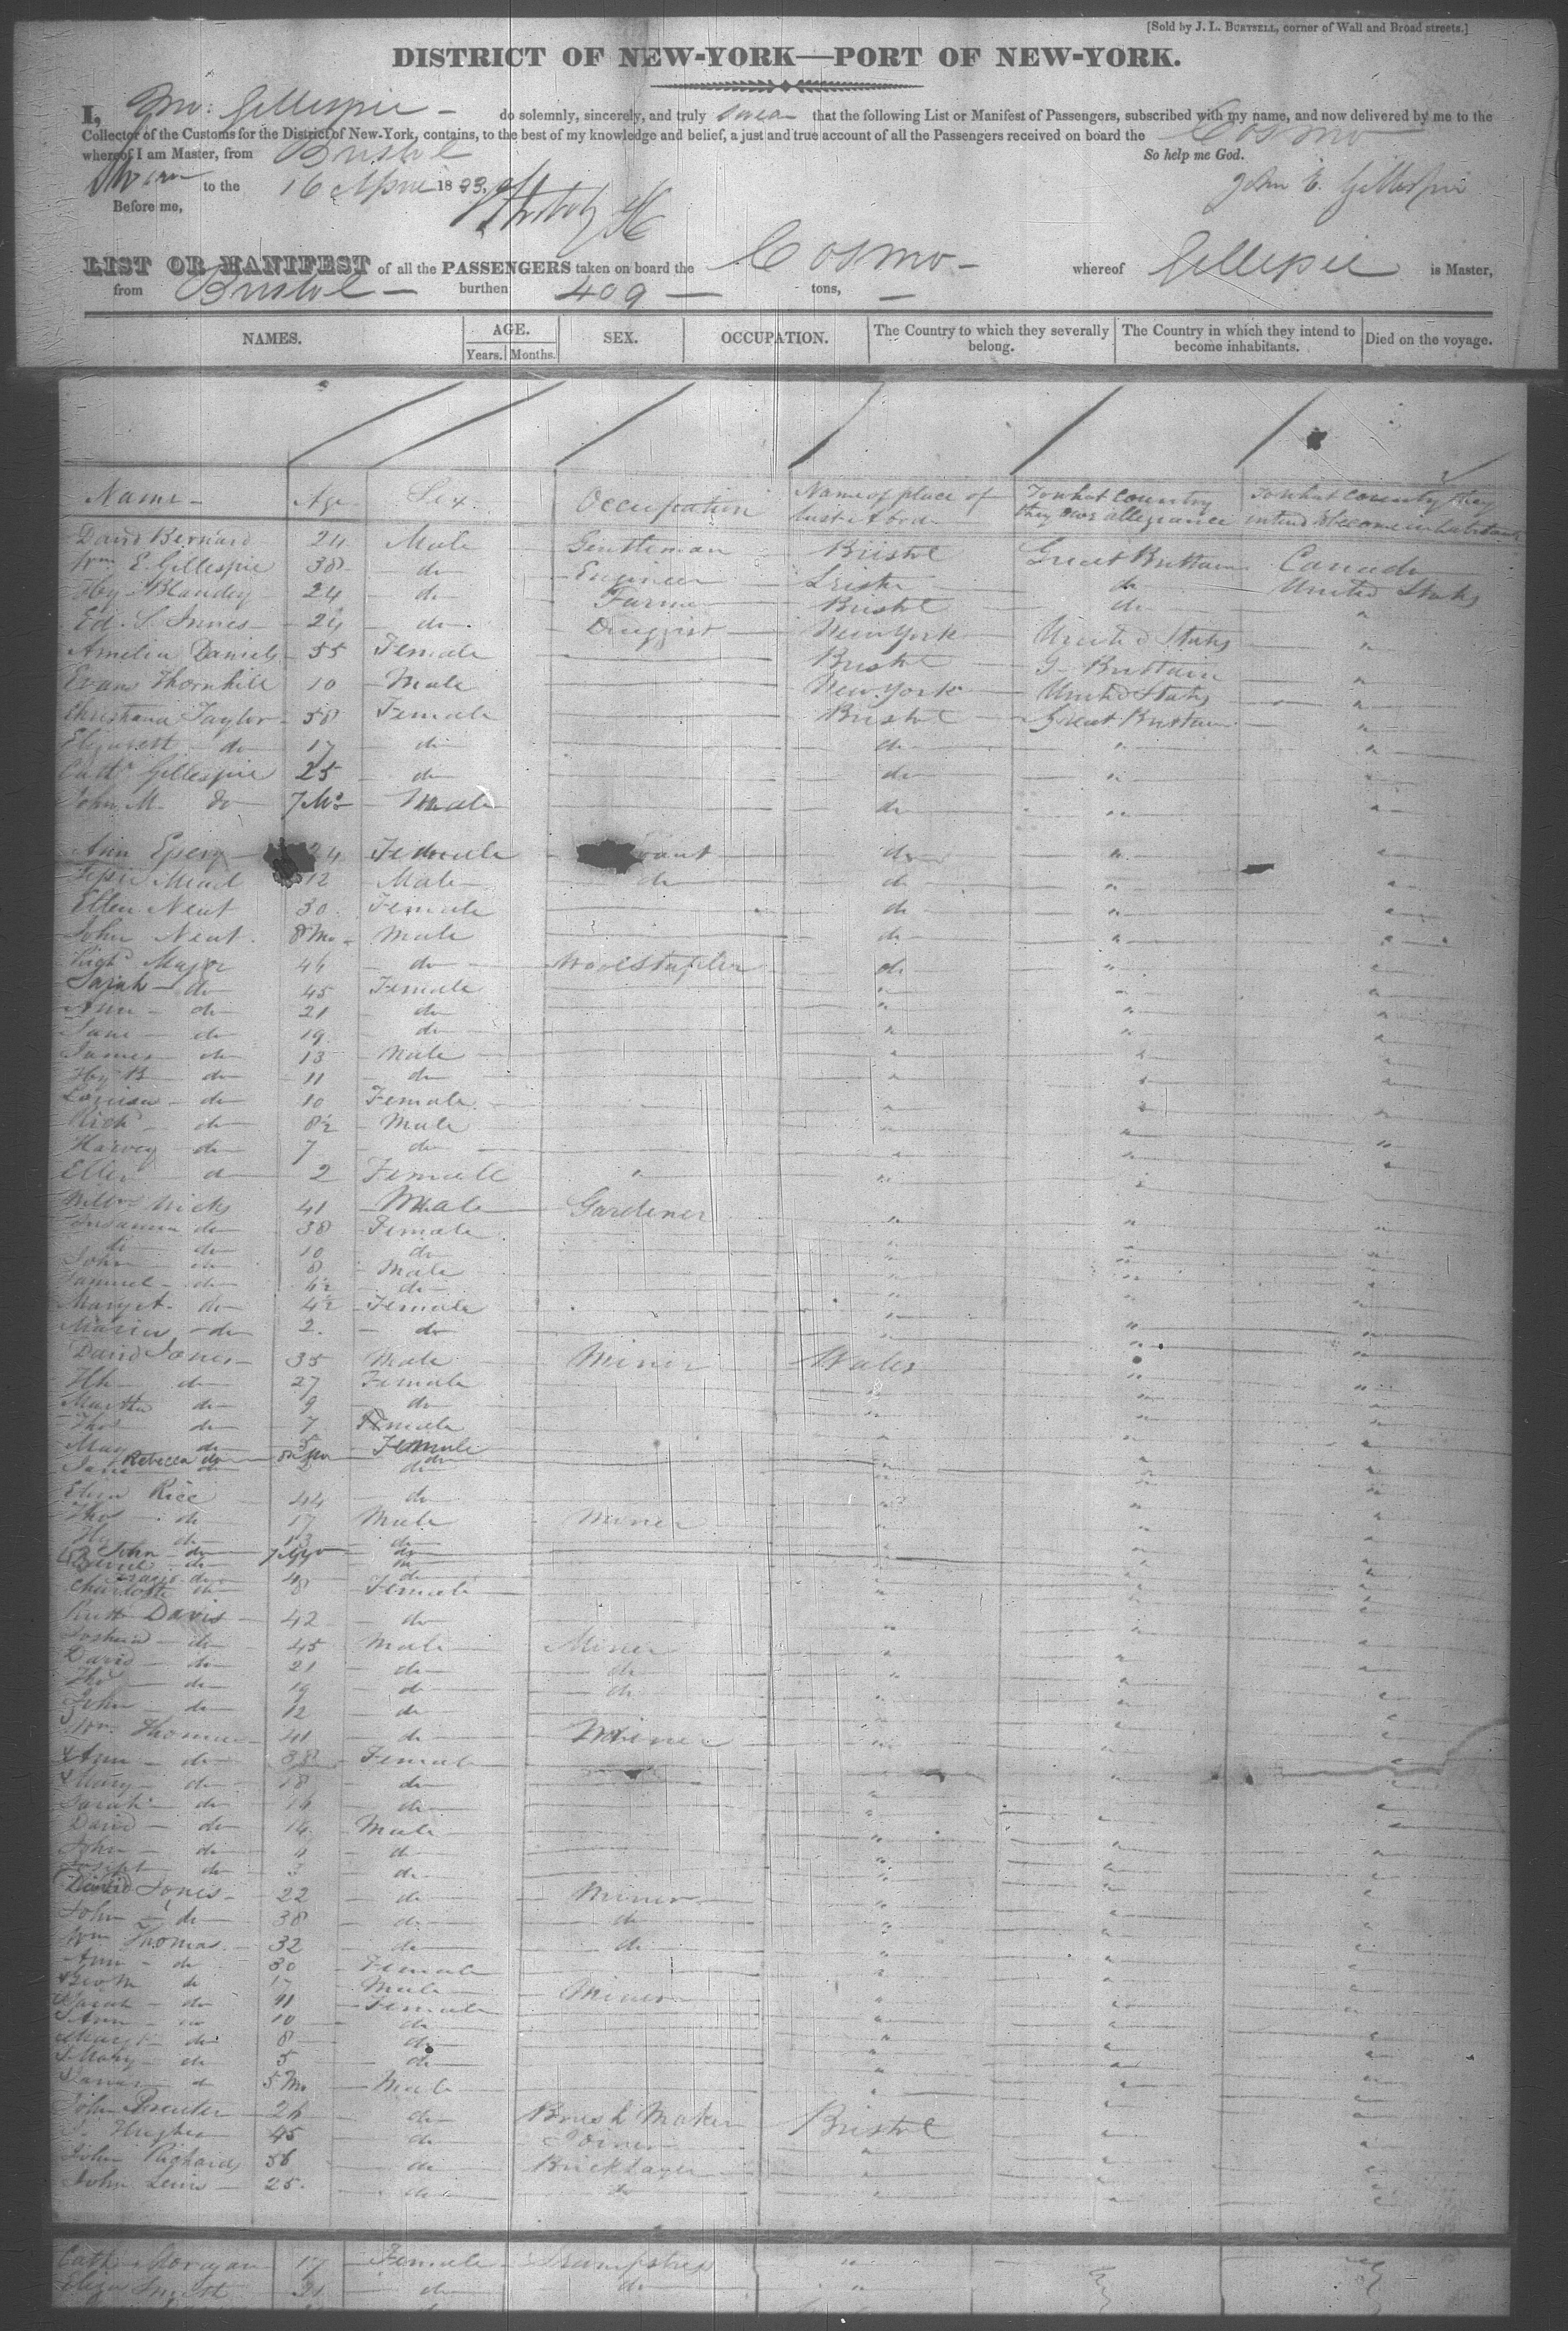 [Sold by J. L. BURTSELL, corner of Wall and Broad streets.]
DISTRICT OF NEW-YORK—PORT OF NEW-YORK.
I, Jno: Gillespie do solemnly, sincerely, and truly swear that the following List or Manifest of Passengers, subscribed with my name, and now delivered by me to the
Collector of the Customs for the District of New-York, contains, to the best of my knowledge and belief, a just and true account of all the Passengers received on board the Cosmo
whereof I am Master, from Bristol So help me God.
Sworn to the 16 April 1833. John E. Gillespie
Before me,
LIST OR MANIFEST of all the PASSENGERS taken on board the Cosmo whereof Gillespie is Master,
from Bristol burthen 409 tons,
NAMES. AGE. SEX. OCCUPATION. The Country to which they severally belong. The Country in which they intend to become inhabitants. Died on the voyage.
Years. Months.
Name Age Sex Occupation Name of place of last abode To what Country they owe allegiance To what Country they intend to become inhabitants
David Bernard 24 Male Gentleman Bristol Great Brittain Canada
Wm E. Gillespie 38 do Engineer do United States
Hy Blandey 24 do Farmer Bristol do "
Ed. S. Innes 24 do Druggist New York United States "
Amelia Daniels 55 Female Bristol G Brittain "
Evans Thornhill 10 Male New York United States "
Christiana Taylor 58 Female Bristol Great Brittain "
do 17 do do " "
Cath Gillespie 25 do do " "
John M. do 7 Mo Male do " "
Ann 24 Female do " "
12 Male do do " "
Ellen Neat 30 Female do " "
John Neat 8 Mo Male do " "
Richd Major 46 do Woolstapler do " "
Sarah do 45 Female " " "
Ann do 21 do " " "
Jane do 19 do " " "
James do 13 Male " " "
Hy B do 11 do " "
Louisa do 10 Female " " "
Richd do 8½ Male " " "
Harvey do 7 do " " "
Ellen do 2 Female " " "
Hicks 41 Male Gardener " " "
Susanna do 38 Female " " "
do do 10 do " " "
John do 8 Male " " "
Samuel do 6½ do " " "
Mary A. do 4½ Female " " "
Maria do 2 do " " "
David Jones 35 Male Miner Wales " "
do 27 Female " " "
Martha do 9 do " " "
Thos do 7 Male " " "
May do 5 Female " " "
Rebecca do 8 Mo do " " "
Jane do 2 do " " "
Eliza Rice 44 do " " "
Thos do 17 Male Miner " " "
do 13 do " " "
John do 7 do " " "
do do " " "
do 4 do " " "
Charlotte do 8 Female " " "
Ruth Davis 42 do " " "
Joshua do 45 Male Miner " " "
David do 21 do do " " "
Thos do 19 do do " " "
John do 12 do " " "
Wm Thomas 41 do Miner " " "
Ann do 38 Female " " "
Mary do 18 do " " "
Sarah do 16 do " " "
David do 14 Male " " "
John do do " " "
Joseph do 3 do " " "
David Jones 22 do Miner " " "
John do 38 do do " " "
Wm Thomas 32 do do " " "
Ann do 30 Female " " "
do 17 Male Miner " " "
Sarah do 11 Female " " "
Ann do 10 do " " "
Margt do 8 do " " "
Mary do 5 do " " "
do 5 Mo Male " " "
John 26 do Brush Maker Bristol " "
Hughes 45 do Joiner " " "
John Richards 56 do Bricklayer " " "
John Lewis 25 do do " " "
Cath Morgan 17 Female "
Eliza Smith 21 do do "